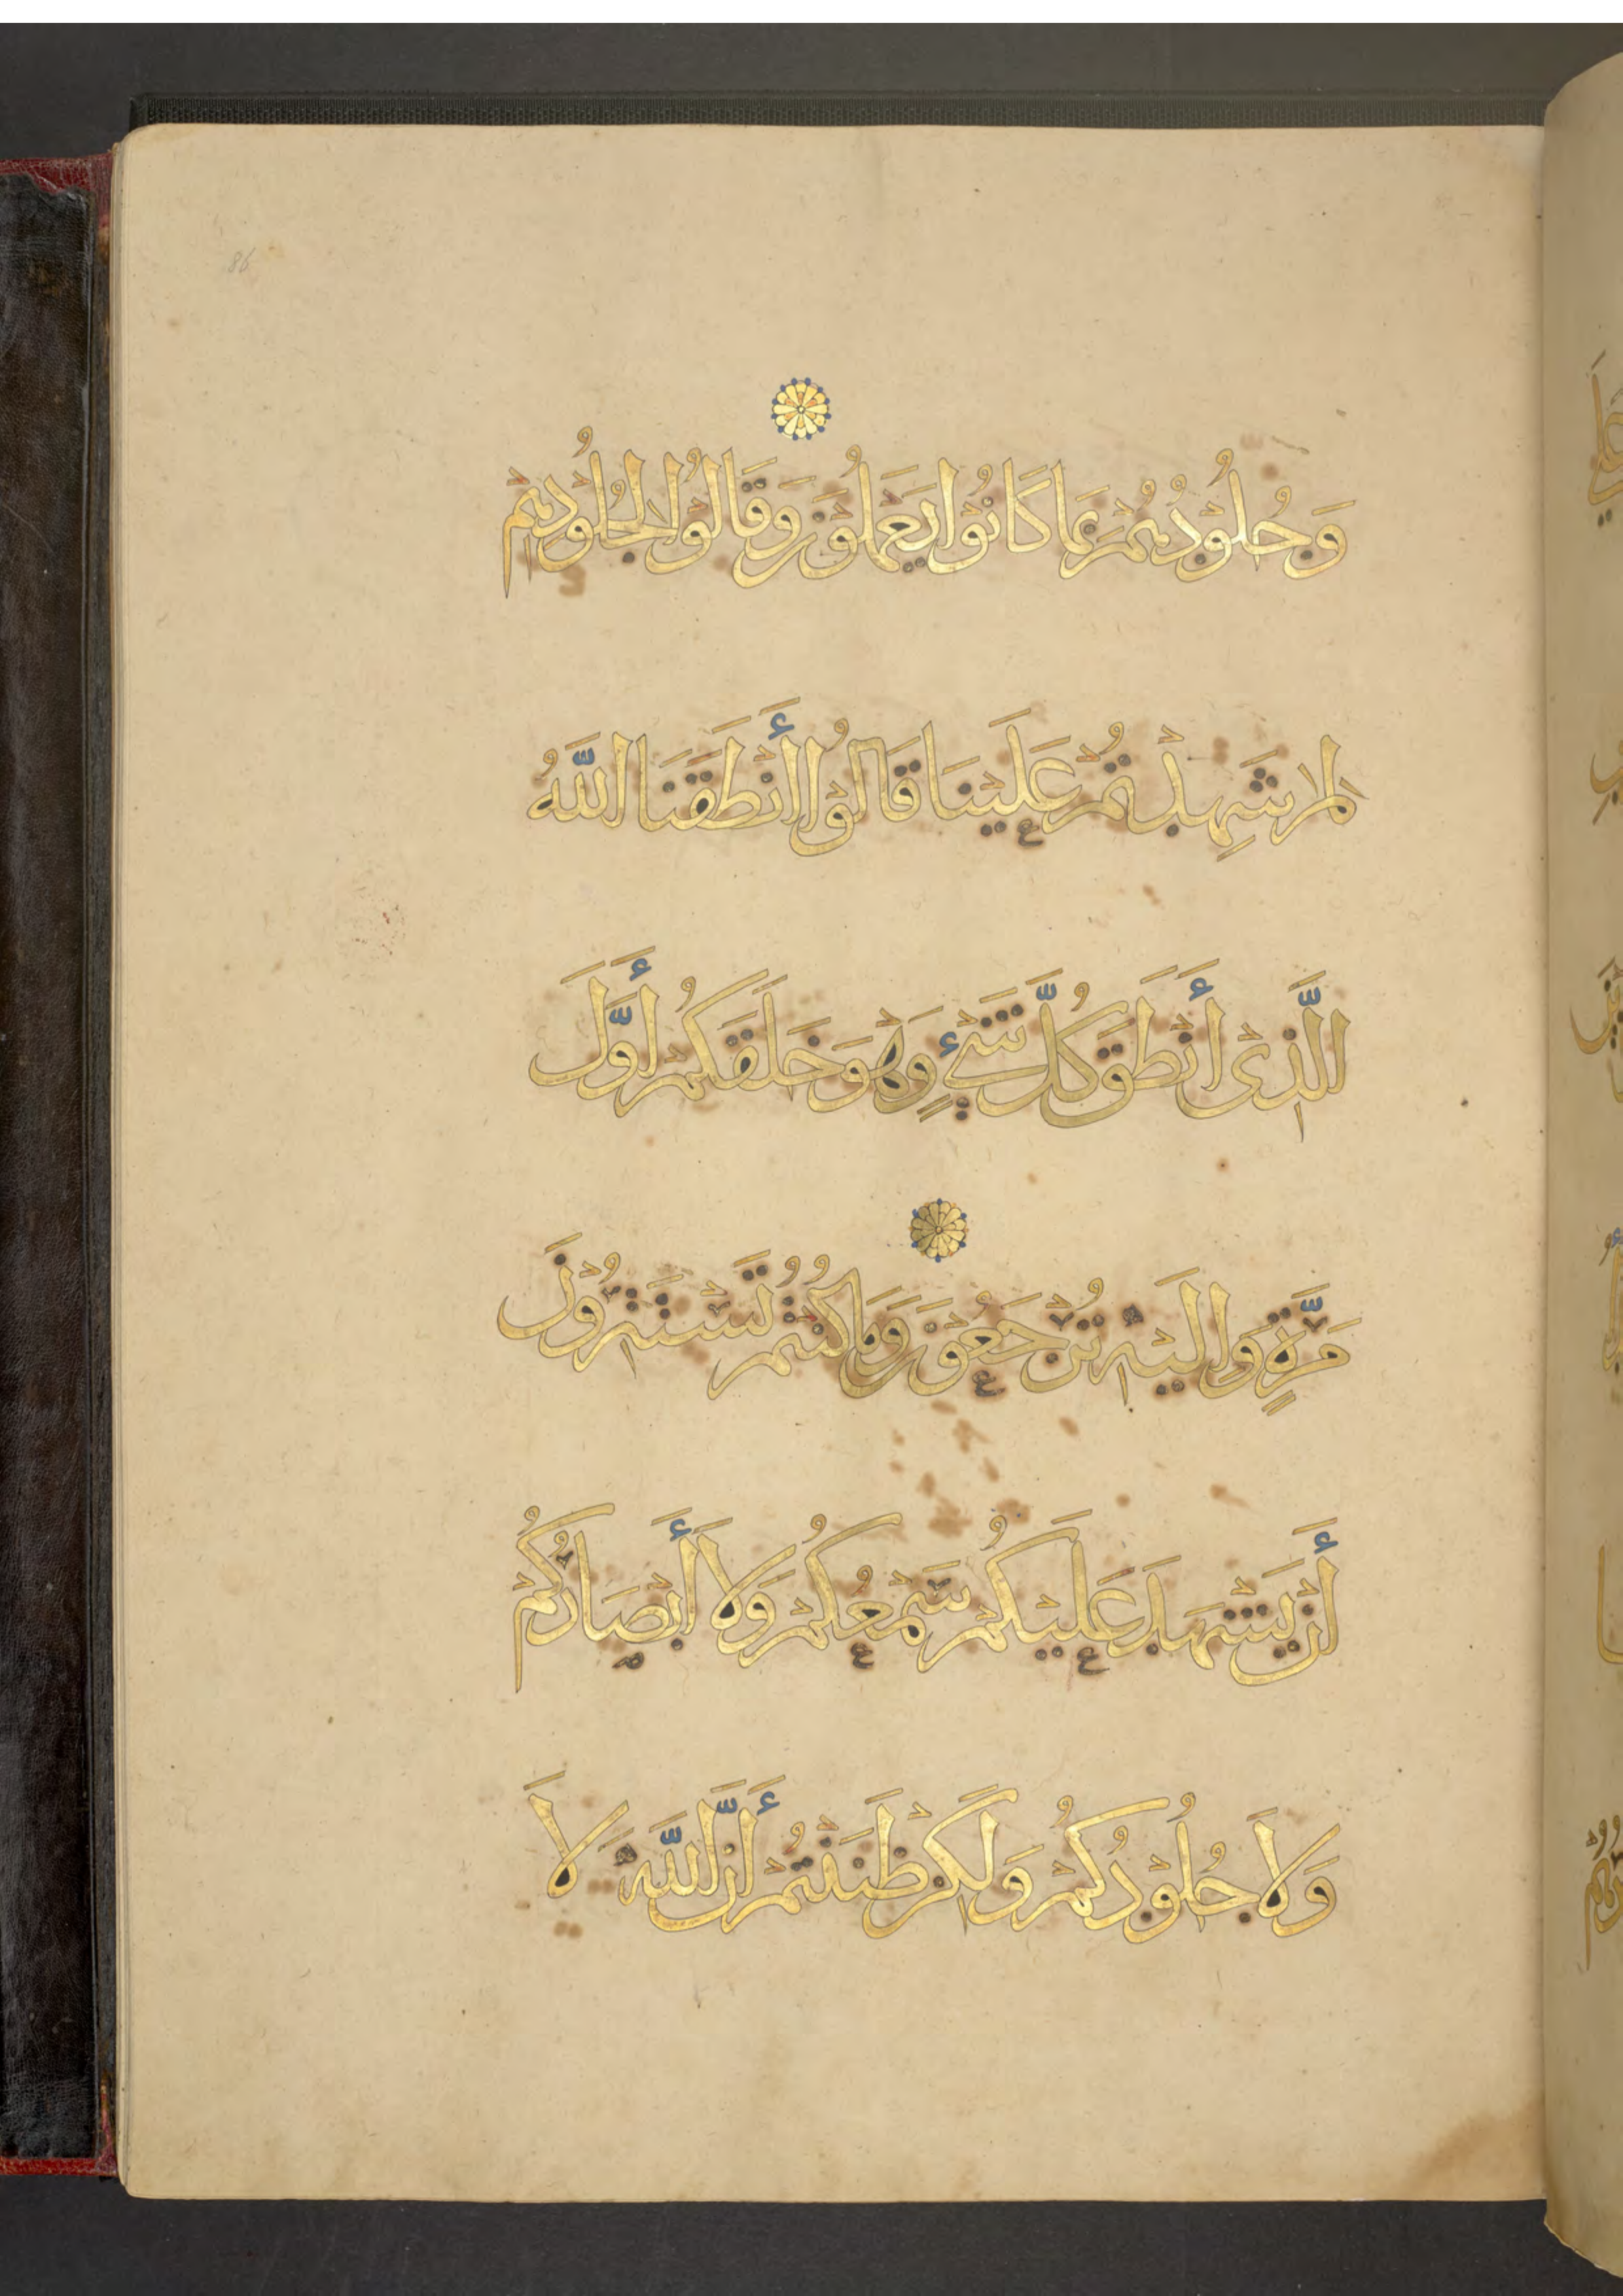 86
وَجُلُوْدُهُمْ بِمَا كَانُوْا يَعْمَلُوْنَ وَقَالُوْا لِجُلُوْدِهِمْ
لِمَ شَهِدْتُمْ عَلَيْنَا قَالُوْا أَنْطَقَنَا اللَّهُ
الَّذِىْ أَنْطَقَ كُلَّ شَيْءٍ وَهْوَ خَلَقَكُمْ أَوَّلَ
مَرَّةٍ وَإِلَيْهِ تُرْجَعُوْنَ وَمَا كُنْتُمْ تَسْتَتِرُوْنَ
أَنْ يَشْهَدَ عَلَيْكُمْ سَمْعُكُمْ وَلَا أَبْصَارُكُمْ
وَلَا جُلُوْدُكُمْ وَلَكِنْ ظَنَنْتُمْ أَنَّ اللَّهَ لَا